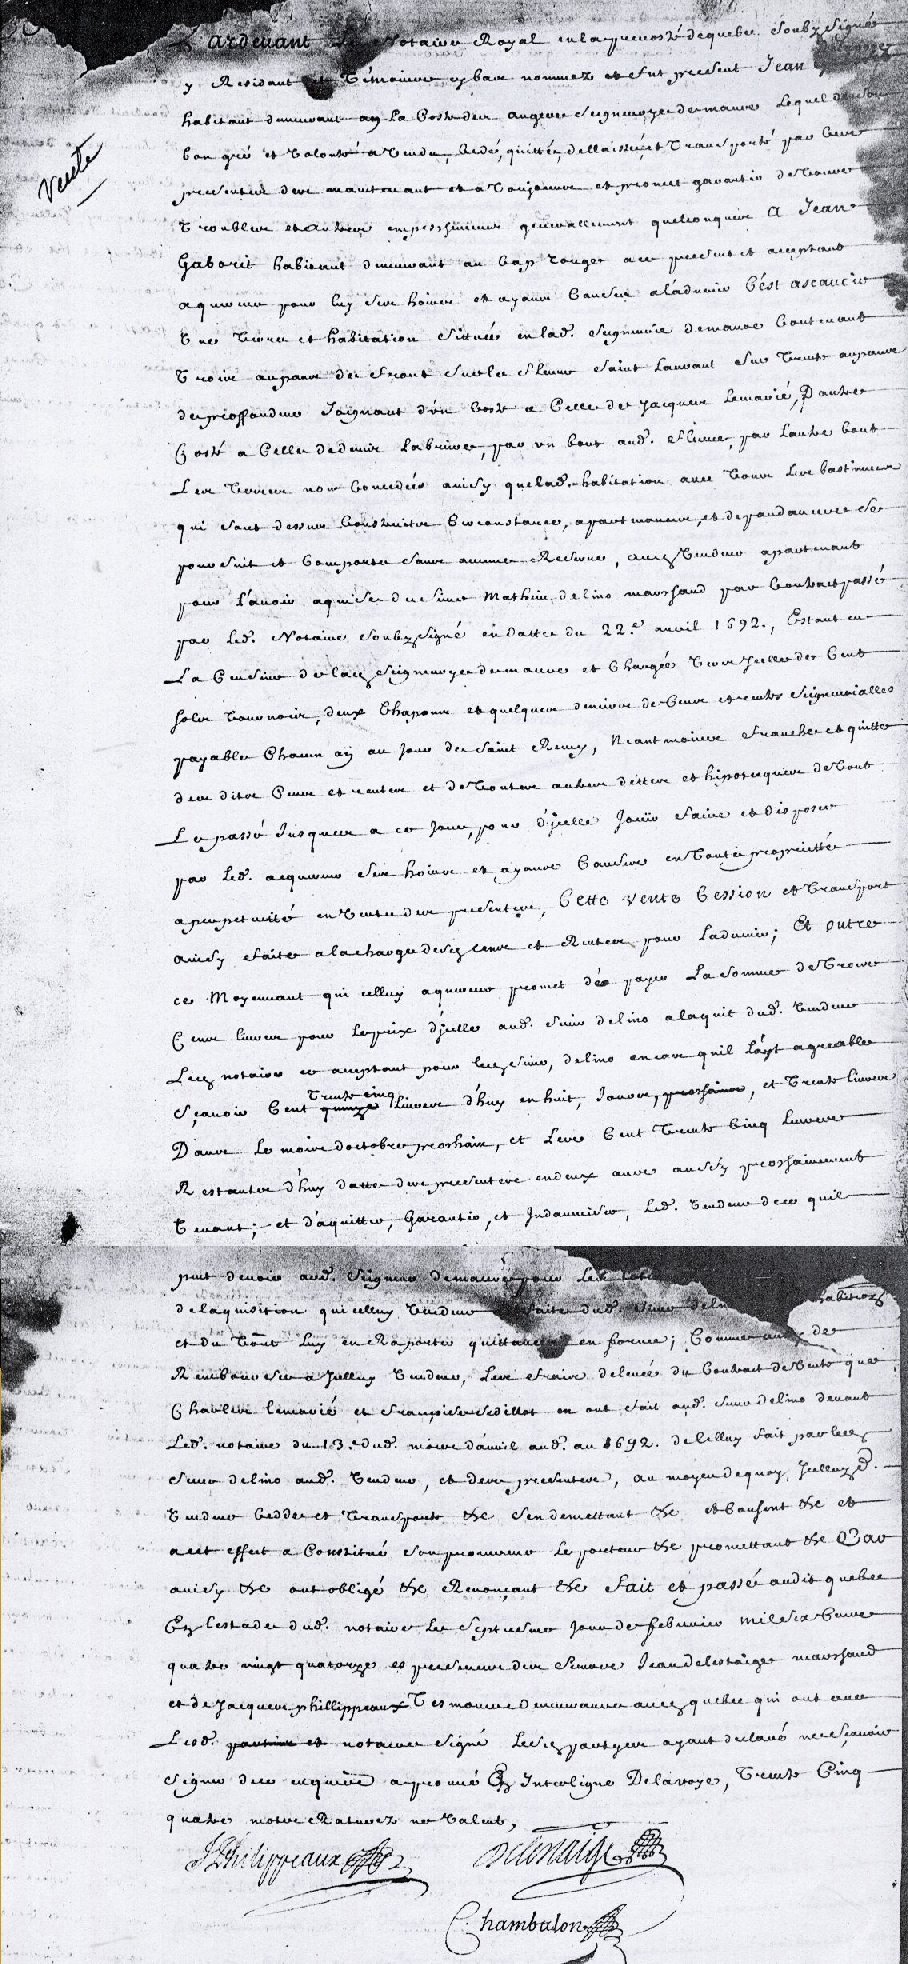 Pardevant le Notaire Royal en la prevosté de quebec Soubz Signé
y Residant et Témoins cy bas nommez et fut present Jean
habitant demeurant en La Coste des anges Seigneurye de maure Lequel de son
bon gré et Volonté a Vendu, Cedé, quitté, dellaissé, et Transporté par Ces
presentes des maintenant et a Toujours et promet garantir de Tous
Troubles et autres empeschemens generallement quelconques A Jean
Gaborit habitant demeurant au Cap Rouge a ce present et acceptant
aquereur pour luy Ses hoirs et ayans Causes a l'advenir C'est ascavoir
Une Terre et habitation Sittuée en lad. Seigneurie de maure Contenant
Trois arpans de front Sur le fleuve Saint Laurant Sur Trente arpans
de proffondeur Joignant d'un Costé a Celle de Jacques Lemarié, D'autre
Costé a Celle de denis Labrieres, par un bout aud. fleuve, par Lautre bout
Les Terres non Concedées ainsy que lad. habitation avec Tous Les bastimens
qui sont dessus Construits Circonstances, apartenances, et dependances Se
poursuit et Comporte Sans aucune Reserve, aud. Vendeur apartenant
pour L'avoir aquise du Sieur Mathieu delino marchand par Contract passé
par Led. Notaire Soubz Signé en datte du 22.e avril 1692., Estant en
La Censive de lad. Seigneurye de maure et Chargée Vers Icelle de Cent
Solz Tournois, deux Chapons et quelques deniers de Cens et rentes Seigneurialles
payable Chacun an au Jour de Saint Remy, Neantmoins franche et quitte
des dites Cens et rentes et de Toutes autres dettes et hipotecques de Tout
Le passé Jusques a ce Jour, pour d'Jcelle Jouir faire et Disposer
par Led. acquereur Ses hoirs et ayans Causes en Toute propriétté
a perpetuité en Vertu des presentes, Cette Vente Cession et Transport
ainsy faite a la charge desd. Cens et Rentes pour Ladvenir; Et outre
ce Moyennant que icelluy aquereur promet de payer La Somme de Trois
Cens livres pour Le prix d'Jcelle aud. Sieur delino a laquit dud. Vendeur
Led. notaire ce acceptant pour led. Sieur, delino encore quil L'ayt agreable
Sçavoir Cent Trente cinq quinze livres d'huy en huit, Jours, prochains, et Trente livres
Dans Le mois doctobre prochain, et Les Cent Trente Cinq Livres
Restantes d'huy datte des presentes en deux ans aussy prochainement
Venant; et d'aquitter, Garantir, et Indamniser, Led. Vendeur de ce quil
peut devoir aud. Seigneur de maure pour Les lots
de laquisition que icelluy Vendeur faite dud. Sieur delino habitation
et du Tout Luy en Raporter quittance en forme; Comme aussy de
Rembourser a Jcelluy Vendeur, Les frais de levée du Contract de Vente que
Charles lemarié et françoise Sedillot en ont fait aud. Sieur delino devant
Led. notaire du 13.e dud. mois d'avril aud. an 1692. de Celluy fait par led.
Sieur delino aud. Vendeur, et des presentes, au moyen de quoy, Jcelluy d.
Vendeur Cedde et Transporte &c Sen demettant &c et Consent &c et
a cet effet a Constitué Son procureur Le porteur &c promettant &c Car
ainsy &c ont obligé &c Renonçant &c Fait et passé audit quebec
En lestude dud. notaire Le Septiesme Jour de febvrier mil Six Cens
quatre vingt quatorze es presence des Sieurs Jean delestaige marchand
et de Jacques phillippeaux Tesmoins demeurans aud. quebec qui ont avec
Lesd. parties et notaire Signé Lesd. partyes ayant declaré ne Sçavoir
Signer de ce enquis aprouvé En Interligne De lavoyer, Trente Cinq
quatre motz Raturez ne Valent,
J Philippeaux
Delestaige
Chambalon
Vente